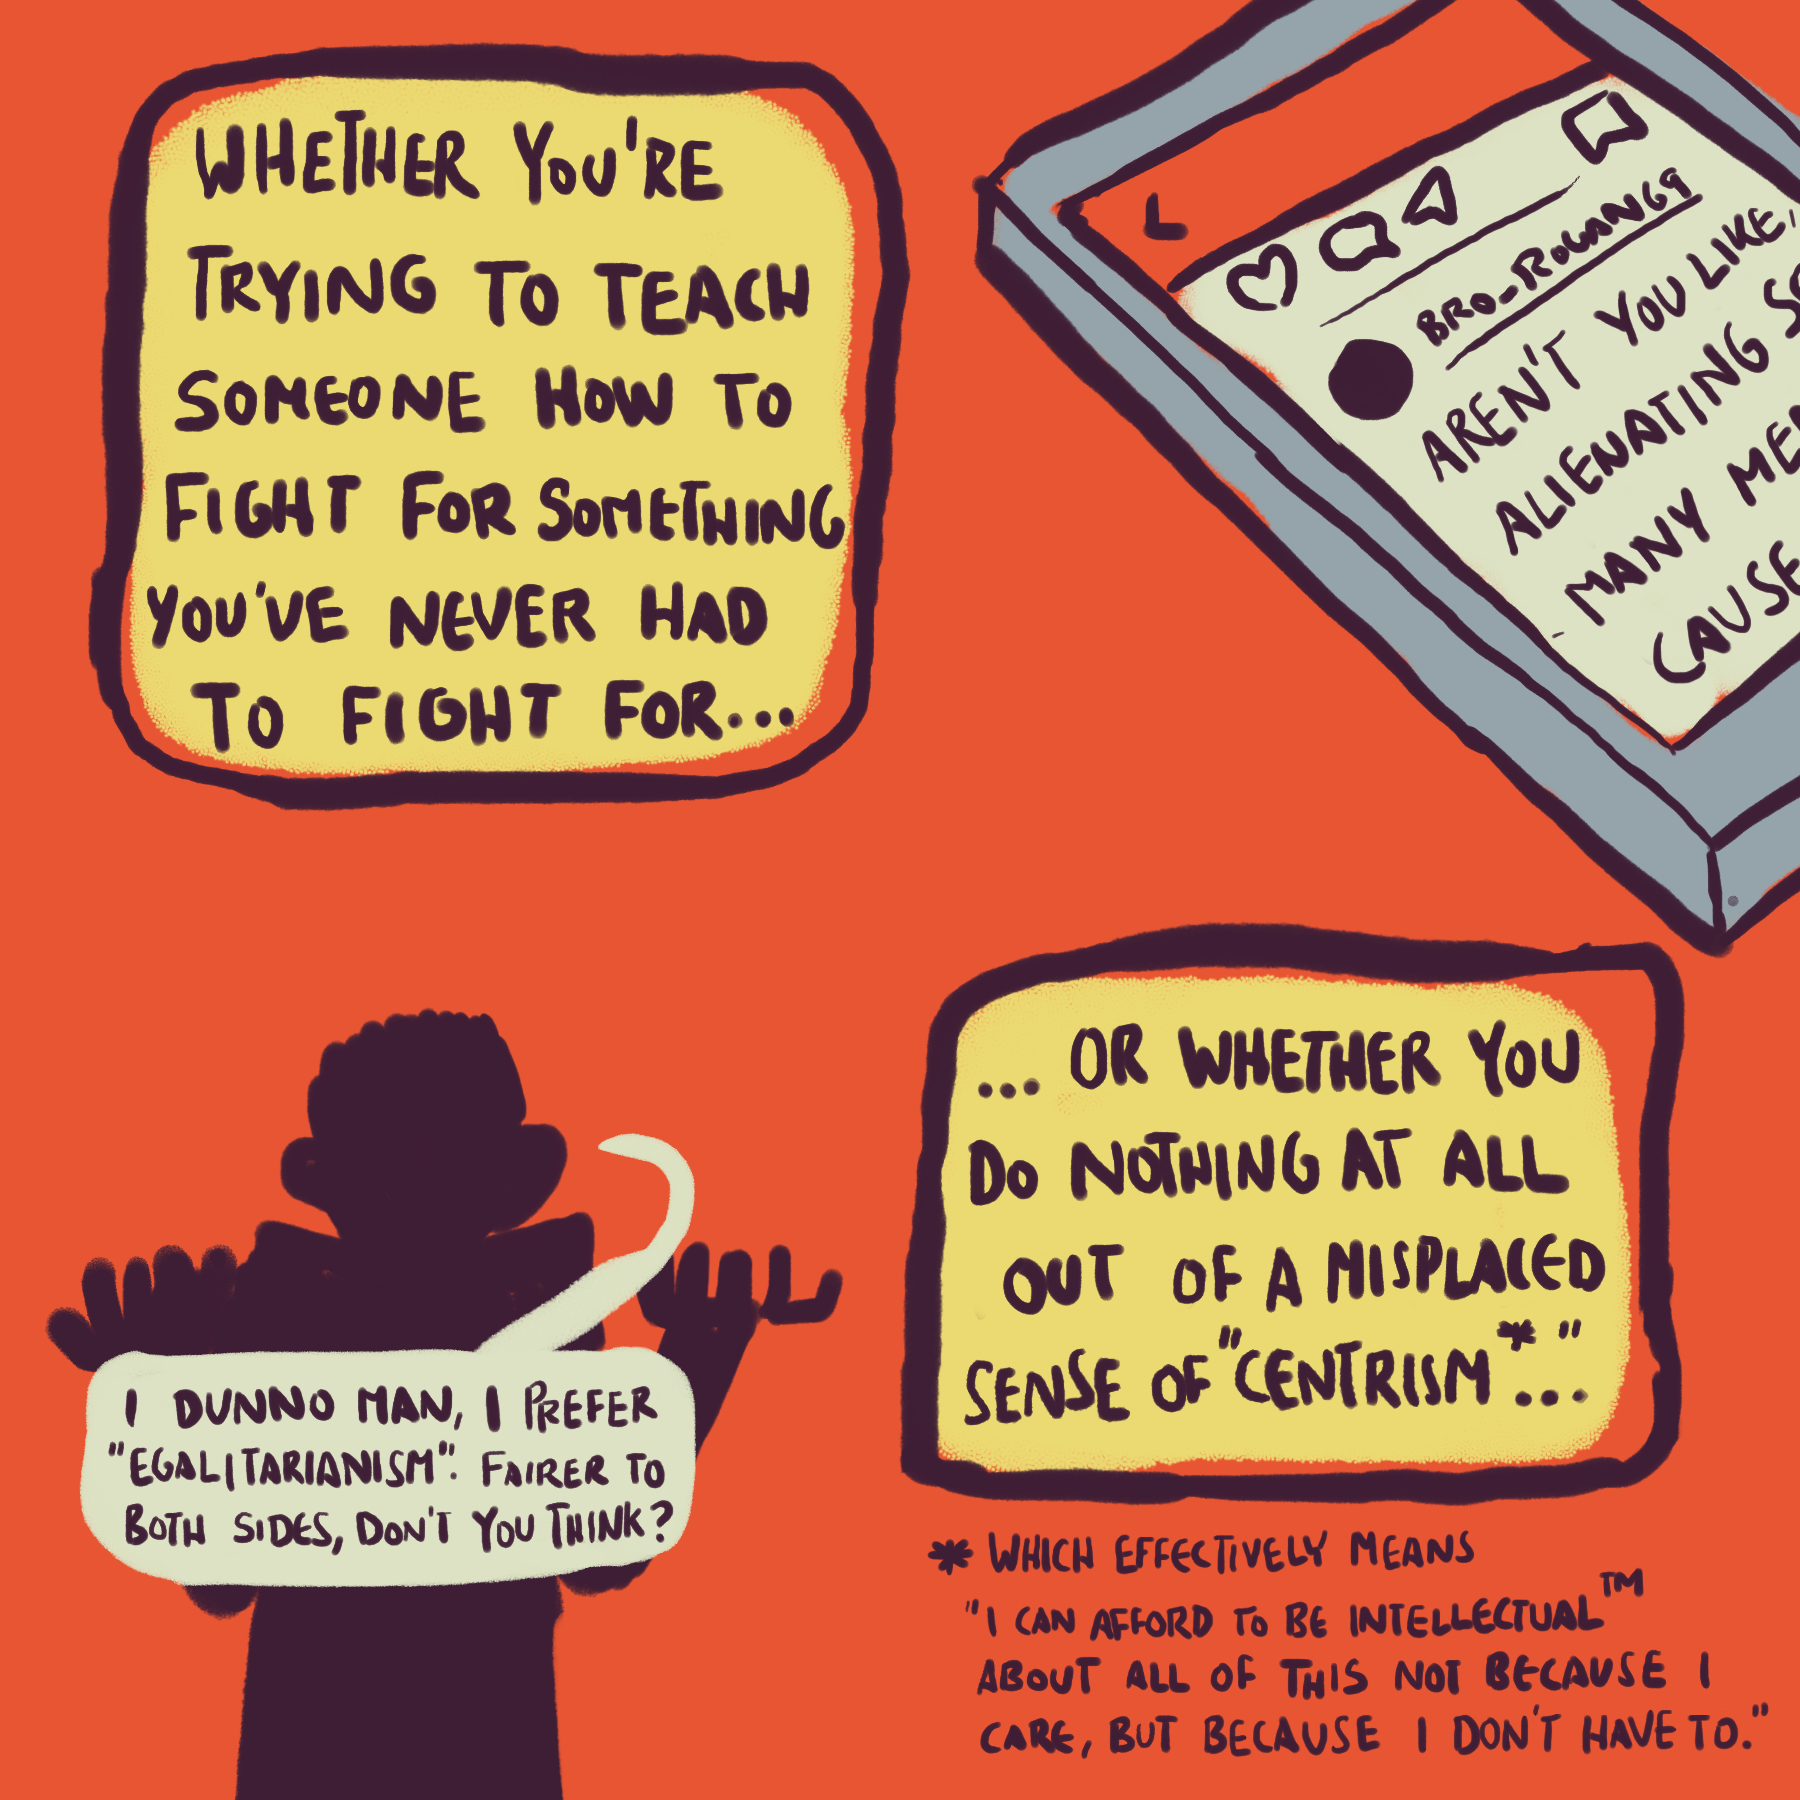 WHETHER YOU'RE
TRYING TO TEACH
SOMEONE HOW TO
FIGHT FOR SOMETHING
YOU'VE NEVER HAD
TO FIGHT FOR...
AREN'T YOU LIKE,
ALIENATING
MANY
CAUSE
I DUNNO MAN, I PREFER
"EGALITARIANISM". FAIRER TO
BOTH SIDES, DON'T YOU THINK?
... OR WHETHER YOU
DO NOTHING AT ALL
OUT OF A MISPLACED
SENSE OF "CENTRISM*"...
* WHICH EFFECTIVELY MEANS
"I CAN AFFORD TO BE INTELLECTUAL™
ABOUT ALL OF THIS NOT BECAUSE I
CARE, BUT BECAUSE I DON'T HAVE TO."